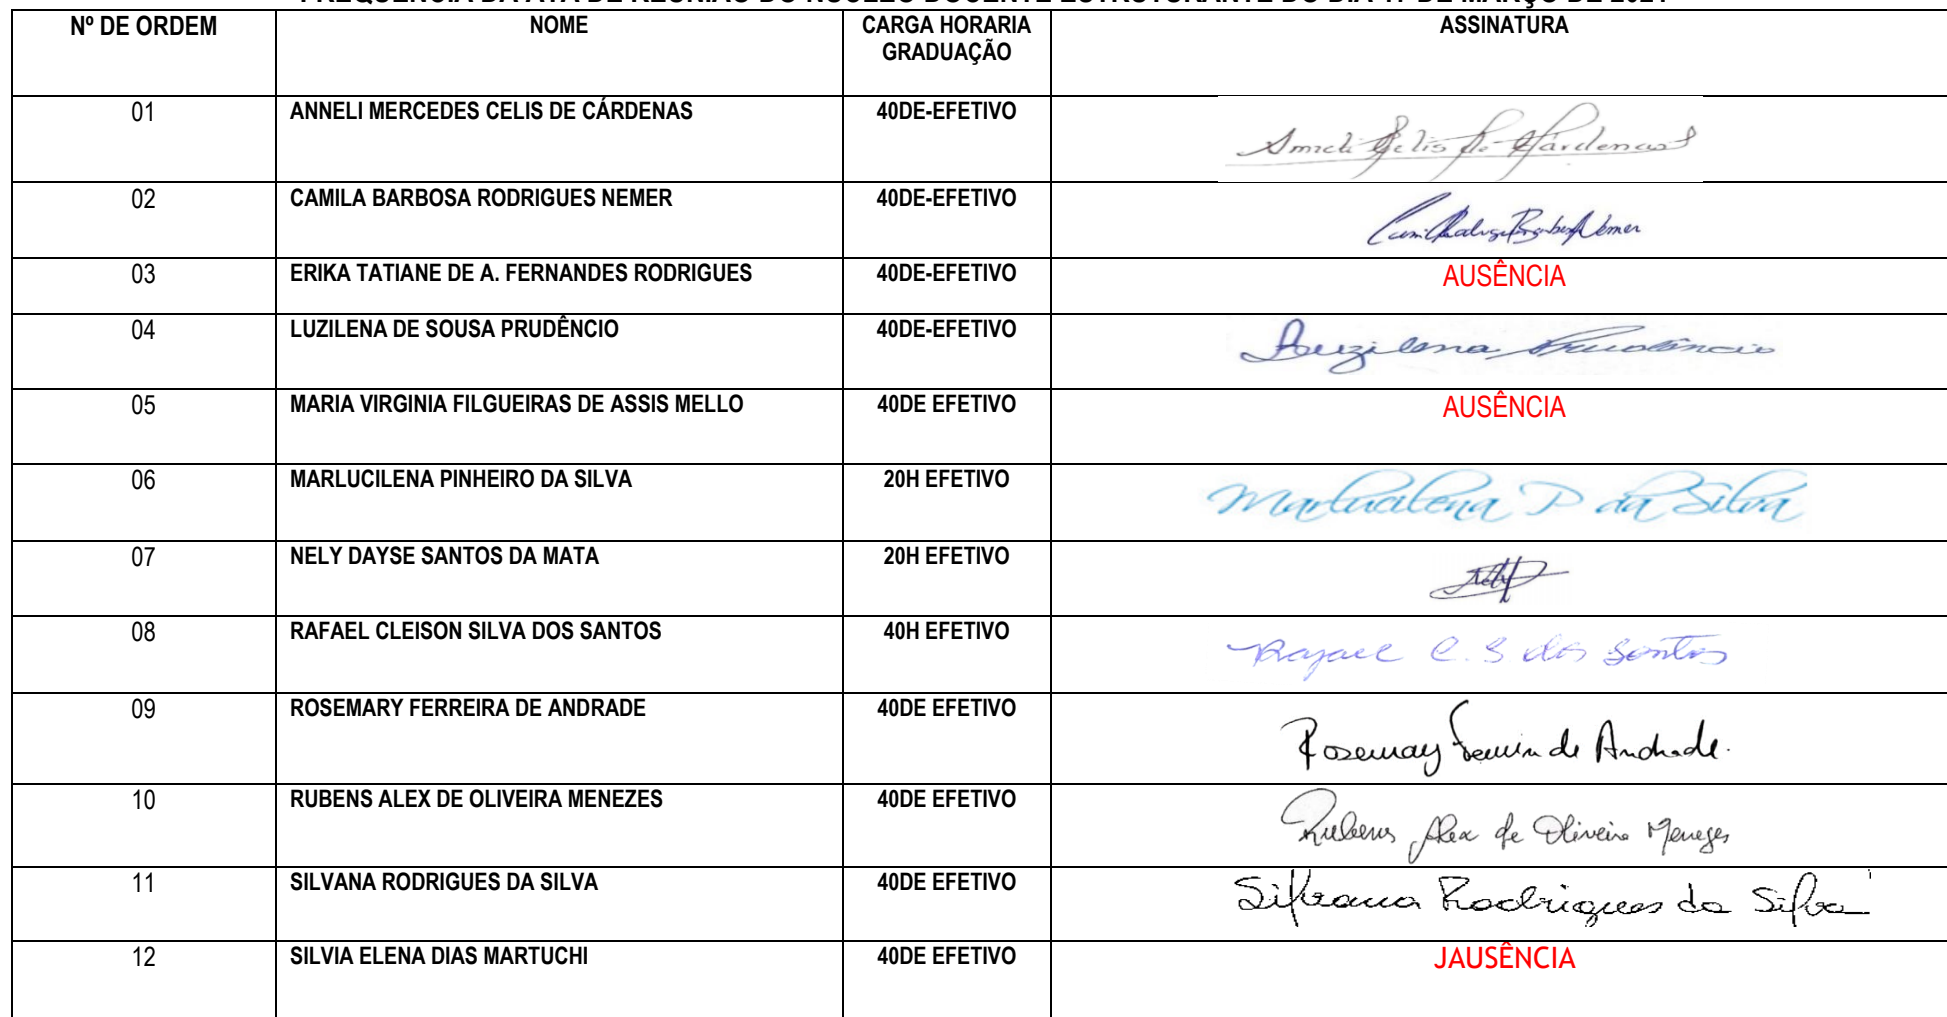 FREQUÊNCIA DA ATA DE REUNIÃO DO NÚCLEO DOCENTE ESTRUTURANTE DO DIA 17 DE MARÇO DE 2021
Nº DE ORDEM NOME CARGA HORARIA GRADUAÇÃO ASSINATURA
01 ANNELI MERCEDES CELIS DE CÁRDENAS 40DE-EFETIVO Anneli Celis de Cárdenas
02 CAMILA BARBOSA RODRIGUES NEMER 40DE-EFETIVO Camila Rodrigues Barbosa Nemer
03 ERIKA TATIANE DE A. FERNANDES RODRIGUES 40DE-EFETIVO AUSÊNCIA
04 LUZILENA DE SOUSA PRUDÊNCIO 40DE-EFETIVO Luzilena Prudêncio
05 MARIA VIRGINIA FILGUEIRAS DE ASSIS MELLO 40DE EFETIVO AUSÊNCIA
06 MARLUCILENA PINHEIRO DA SILVA 20H EFETIVO Marlucilena P da Silva
07 NELY DAYSE SANTOS DA MATA 20H EFETIVO Nely
08 RAFAEL CLEISON SILVA DOS SANTOS 40H EFETIVO Rafael C. S dos Santos
09 ROSEMARY FERREIRA DE ANDRADE 40DE EFETIVO Rosemary Ferreira de Andrade.
10 RUBENS ALEX DE OLIVEIRA MENEZES 40DE EFETIVO Rubens Alex de Oliveira Menezes
11 SILVANA RODRIGUES DA SILVA 40DE EFETIVO Silvana Rodrigues da Silva
12 SILVIA ELENA DIAS MARTUCHI 40DE EFETIVO JAUSÊNCIA